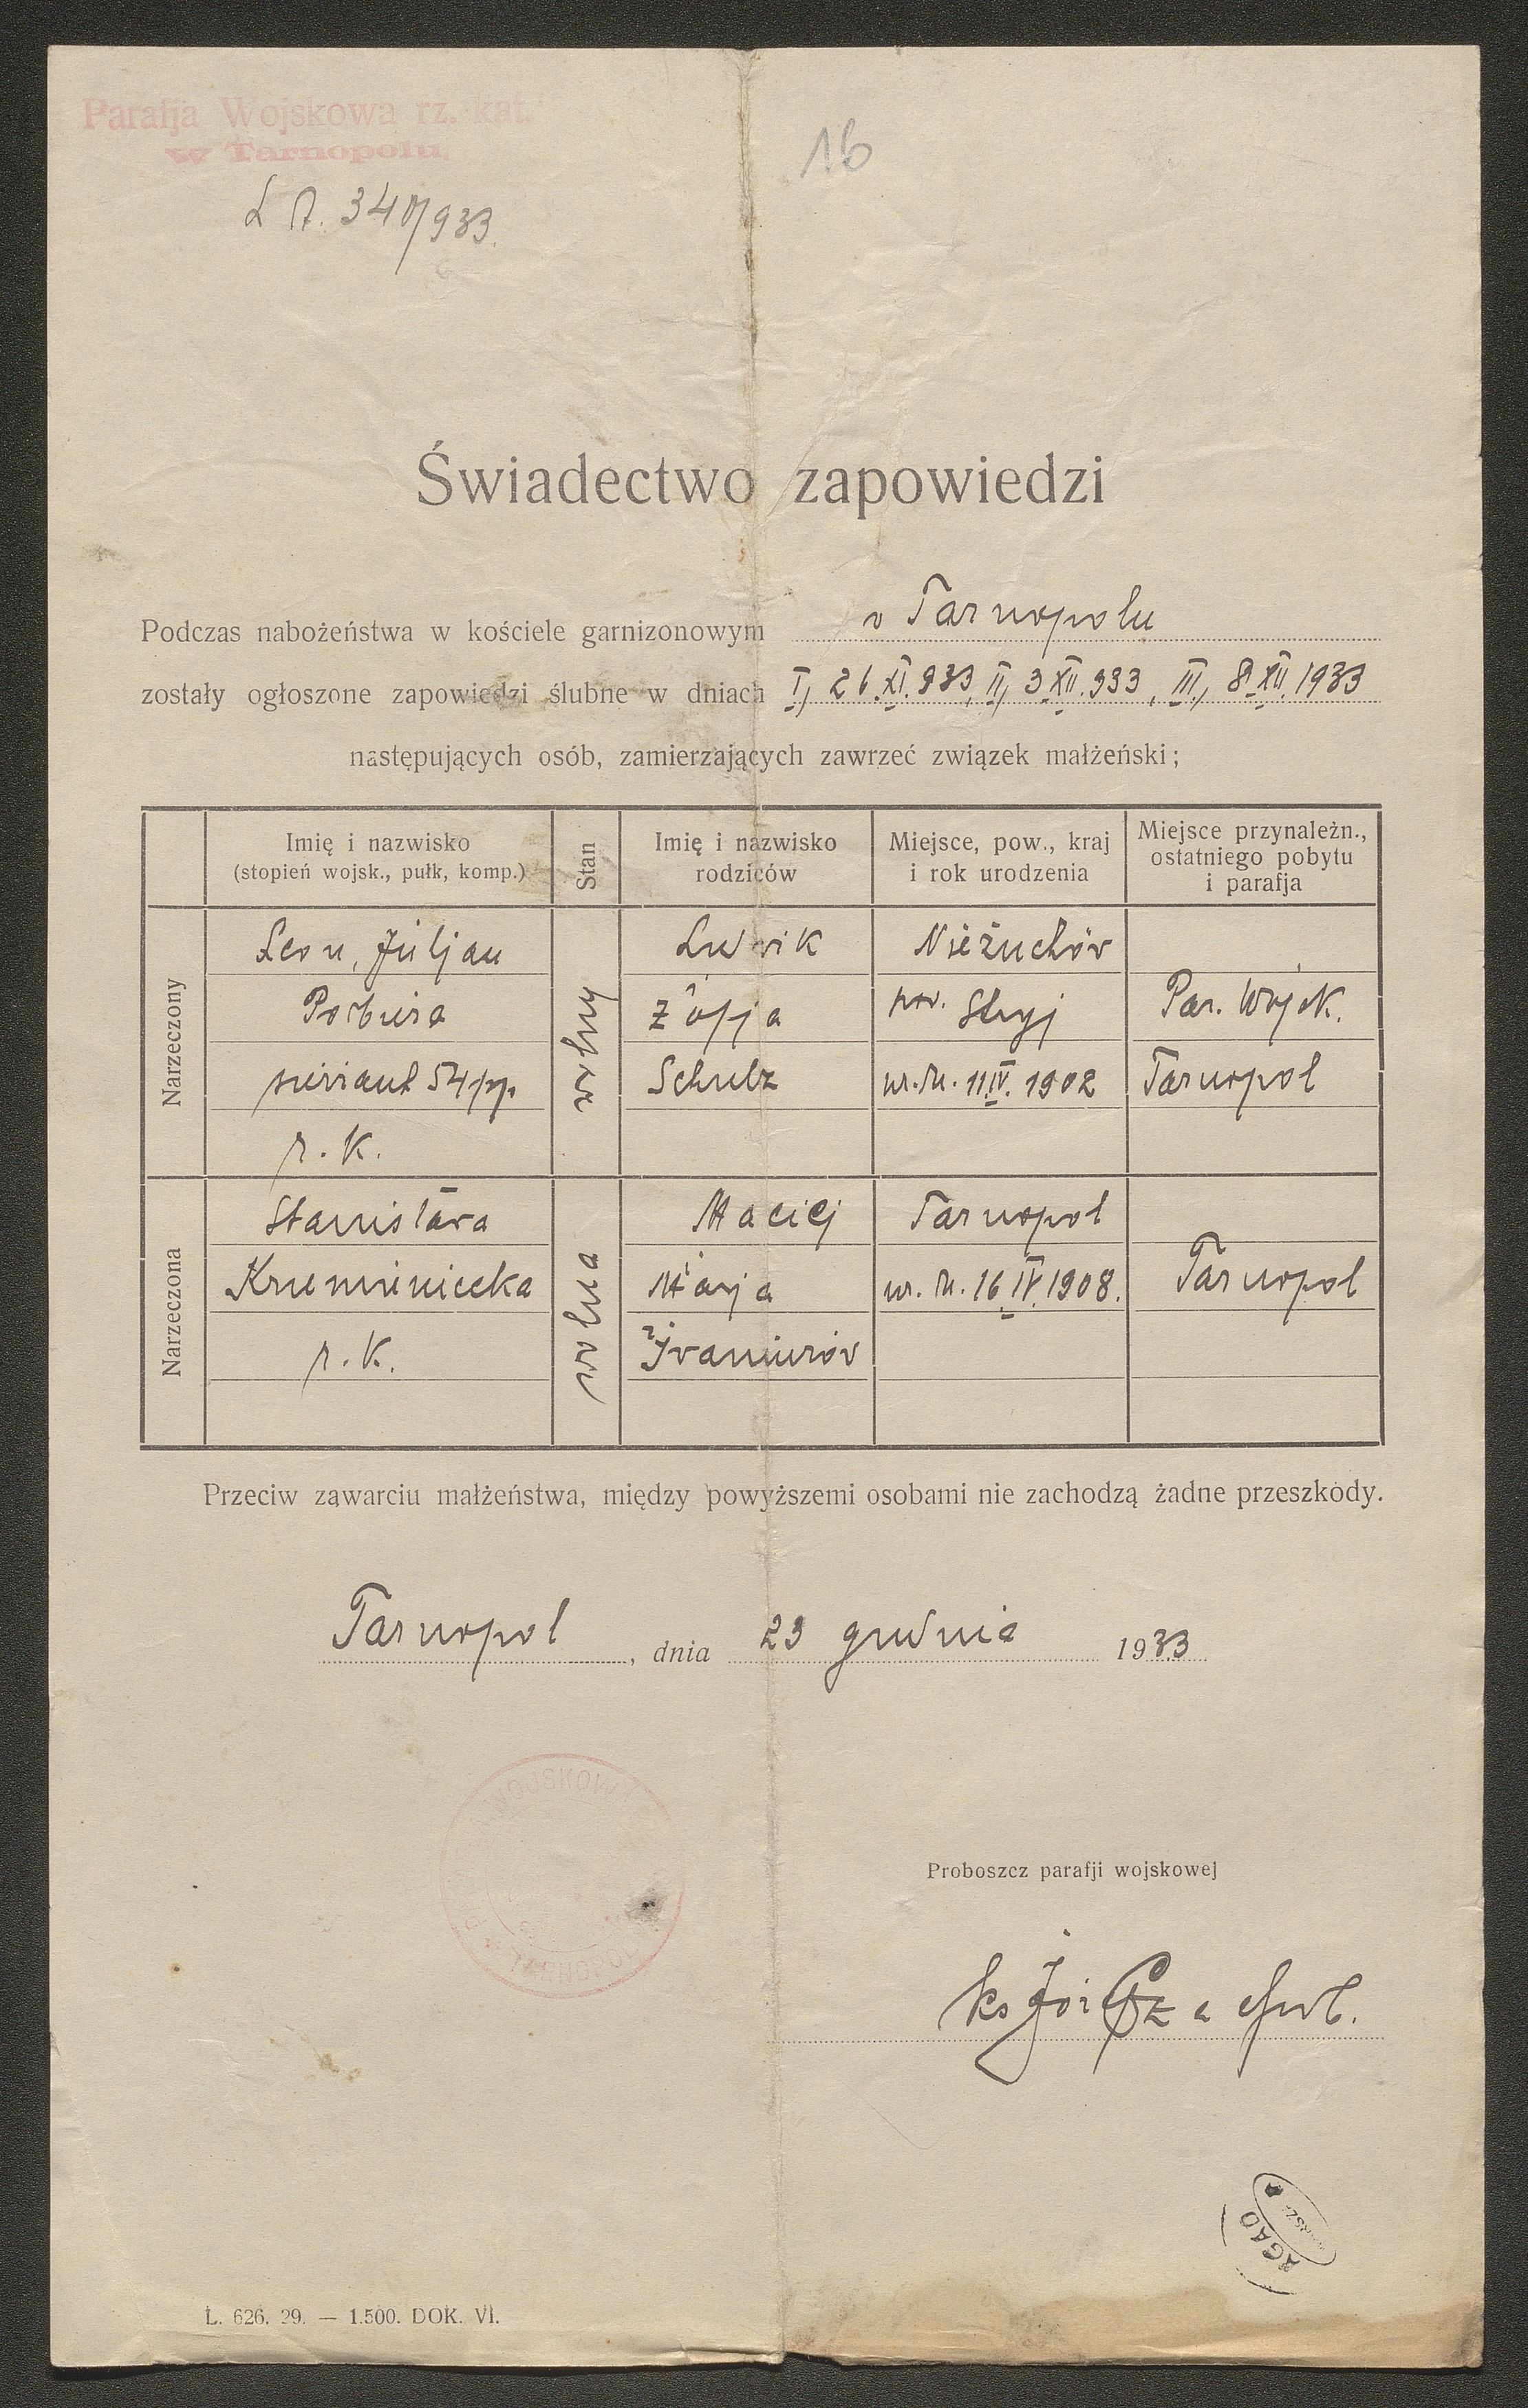 Parafja Wojskowa rz.-kat.
w Tarnopolu.
16
L A. 340/933.
Świadectwo zapowiedzi
Podczas nabożeństwa w kościele garnizonowym w Tarnopolu
zostały ogłoszone zapowiedzi ślubne w dniach I, 26.XI.933, II, 3.XII.933, III, 8.XII.1933
następujących osób, zamierzających zawrzeć związek małżeński;
Imię i nazwisko
(stopień wojsk., pułk, komp.)
Stan
Imię i nazwisko
rodziców
Miejsce, pow., kraj
i rok urodzenia
Miejsce przynależn.,
ostatniego pobytu
i parafja
Narzeczony
Leon, Juljan
sierżant 54 pp.
r. k.
wolny
Ludwik
Zofja
Schulz
Nieżuchów
pow. Stryj
ur. dn. 11.IV.1902
Par. Wojsk.
Tarnopol
Narzeczona
Stanisława
Krzemieniecka
r. k.
wolna
Maciej
Marja
Tarnopol
ur. dn. 16.IV.1908.
Tarnopol
Przeciw zawarciu małżeństwa, między powyższemi osobami nie zachodzą żadne przeszkody.
Tarnopol, dnia 23 grudnia 1933
WOJSKOWA
TARNOPOL
Proboszcz parafji wojskowej
ks
AGAD
L. 626. 29. — 1.500. DOK. VI.